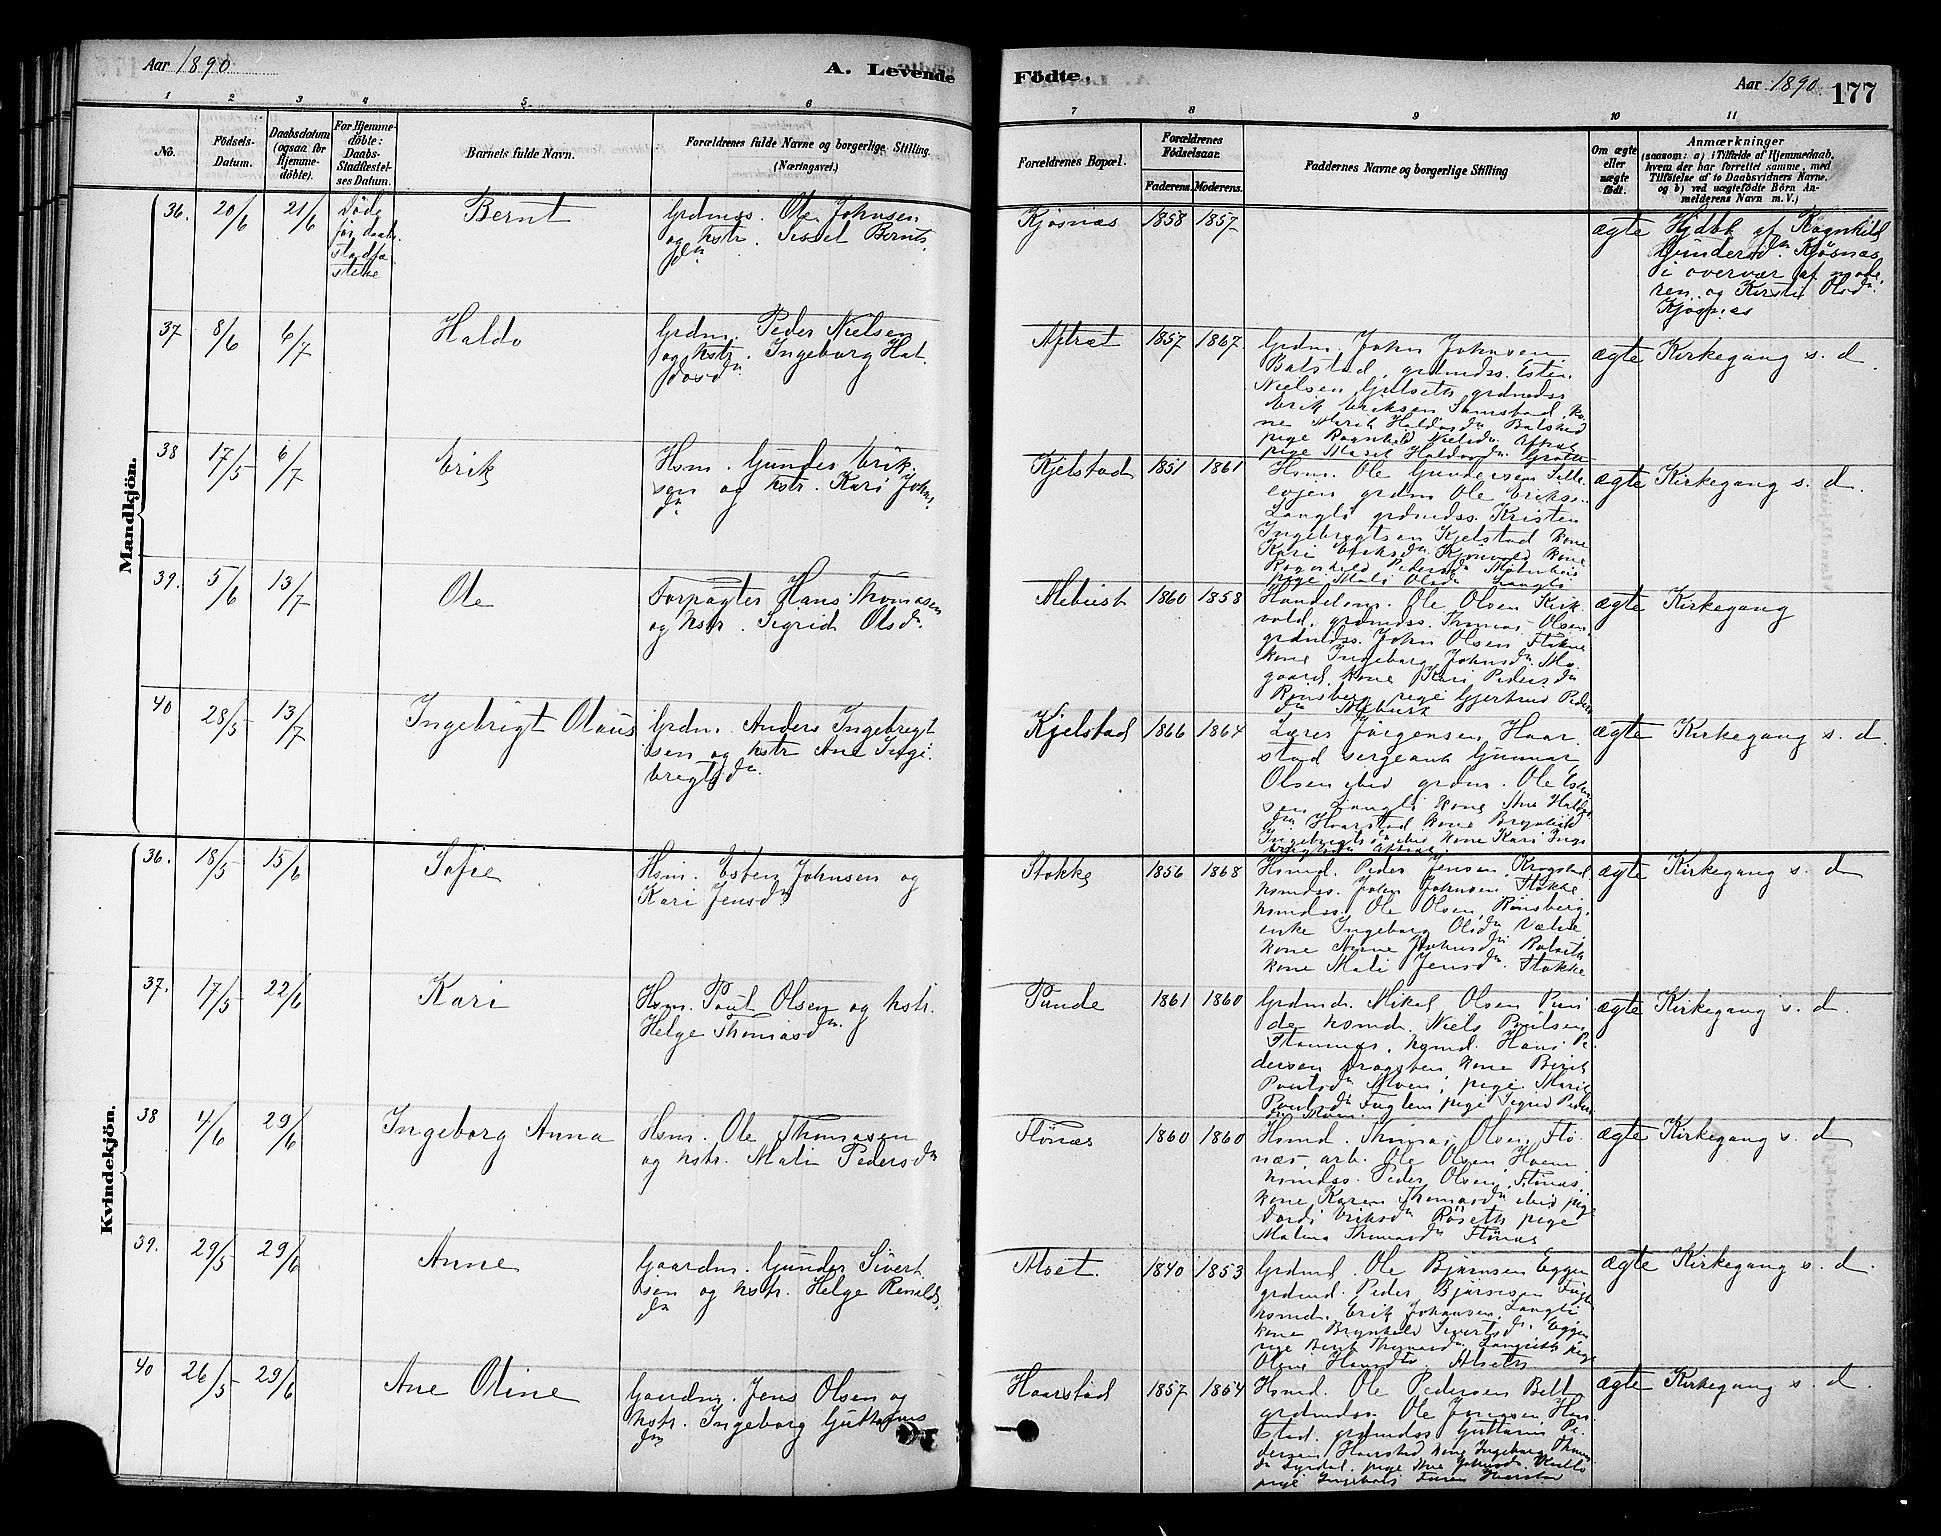 Aar 1890
A. Levende
Födte.
Aar 1890
177
1 2 3 4 5. 6
7 8 9 10 11
No.
Födsels-
Datum.
Daabsdatum
(ogsaa for
Hjemme-
döbte).
For Hjemme-
döbte:
Daabs-
Stadfæstel-
ses Datum.
Barnets fulde Navn.
Forældrenes fulde Navne og borgerlige Stilling.
(Næringsvei.)
Forældrenes Bopæl.
Forældrenes
Födselsaar.
Faderens. Moderens.
Faddernes Navne og borgerlige Stilling
Om ægte
eller
uægte
födt.
Anmærkninger
(saasom: a) i Tilfælde af Hjemmedaab,
hvem der har forrettet samme, med
Tilföielse af to Daabsvidners Navne,
og b) ved uægtefödte Börn An-
melderens Navn m. V.)
Mandkjön.
36. 20/6 21/6 Döde
for daabs
stadfæ
stelse
Bernt
Grdmss. Ole Johnsen
og hstr. Sissel Bernts
dn
Kjøsnæs 1858 1857 ægte
Hjdbt af Ragnhild
Gundersdn Kjøsnæs
i overvær af mode
ren og Kirsti Olsdn
Kjøsnæs
37 8/6 6/7 Haldo
Grdm. Peder Nielsen
og hstr. Ingeborg Hal
dosdn
Aftret 1857 1867
Grdm. John Johnsen
Balstad, grdmdss. Esten
Nielsen Gjelseth, grdmdss
Erik Eriksen Samstad, ko
ne Marit Haldosdn Balstad
pige Ragnhild Nielsdn Aftret
pige Marit Haldosdn
ægte Kirkegang s. d
38 17/5 6/7 Erik
Hsm. Gunder Erik
sen og hstr. Kari Johns
dn
Kjelstad 1851 1861
Hsm. Ole Gundersen
grdm Ole Eriks
Langli grdmdss. Kristen
Ingebregtsen Kjelstad kone
Kari Eriksdn kone
Ragnhild Pedersdn
pige Mali Olsdn Langli
ægte Kirkegang s. d.
39. 5/6 13/7 Ole
Forpagter Hans Thomasen
og hstr. Sigrid Olsdn.
Mebust 1860 1858
Handelsm. Ole Olsen Kirk
vold, grdmdss. Thomas Olsen
grdmdss. John Olsen Stokke
kone Ingeborg Johnsdn Mo
gaard, kone Kari Pedersdn
Rønsberg, pige Gjertrud Peders
dn Mebust
ægte Kirkegang
40 28/5 13/7 Ingebrigt Olaus
Grdm. Anders Ingebregt
sen og hstr Ane Inge
bregtsdn
Kjelstad 1866 1864
Lærer Jørgensen, Haar
stad sergeant Gunnar
Olsen ibid grdm. Ole Esten
sen Langli kone Ane Haldos
dn Haarstad kone Brynhild
Ingebregtsdn ibid kone Kari Inge
bregtsdn Aftret
ægte Kirkegang s. d.
Kvindekjön.
36. 18/5 15/6 Sofie
Hsm. Esten Johnsen og
Kari Jensdn
Stokke 1856 1868
Hsmd. Peder Jensen Krogstad
hsmdss. John Johnsen Stokke
hsmdss. Ole Olsen, Rønsberg,
enke Ingeborg Olsdn
kone Johnsdn
kone Mali Jensdn. Stokke
ægte Kirkegang s. d
37. 17/5 22/6 Kari
Hsm. Poul Olsen og hstr.
Helge Thomasdn
Punde 1861 1860
Grdmd. Mikal Olsen Pun
de hsmd. Niels Poulsen
hsmd. Hans Pe
dersen Dragsten kone Berit
Poulsdn Moen, pige Marit
Poulsdn Fuglem pige Sigrid Peders
dn Moen
ægte Kirkegang s. d.
38 4/6 29/6 Ingeborg Anna
Hsm. Ole Thomasen
og hstr. Mali Pedersdn
Flønæs 1860 1860
Hsmd. Thomas Olsen, Flø
næs, arb. Ole Olsen Hoem
hsmdss. Peder Olsen, Flønæs,
kone Karen Thomasdn ibid pige
Dordi Eriksdn Røseth pige
Malena Thomasdn Flønæs
ægte Kirkegang s. d
39. 29/5 29/6 Anne
Gaardm. Gunder Sivert
sen og hstr. Helge Renalds
dn
Moet. 1840 1853
Grdmd. Ole Bjørnsen Eggen
grdmd. Peder Bjørnsen
hsmd. Erik Johansen Langli
kone Brynhild Sivertsdn. Eggen
pige Berit Thomasdn pige
Oline Alseth
ægte Kirkegang s. d.
40 26/5 29/6 Ane Oline
Gaardm. Jens Olsen og
hstr. Ingeborg Guttorms
dn
Haarstad 1857 1864
Hsmd. Ole Pedersen
grdmdss. Ole Jensen, Haar
stad. grdmdss Guttorm Pe
dersen Haarstad kone Ingeborg Thomas
dn Fyrdal. pige Ane
pige Ingeborg Haarstad
ægte Kirkegang s. d.